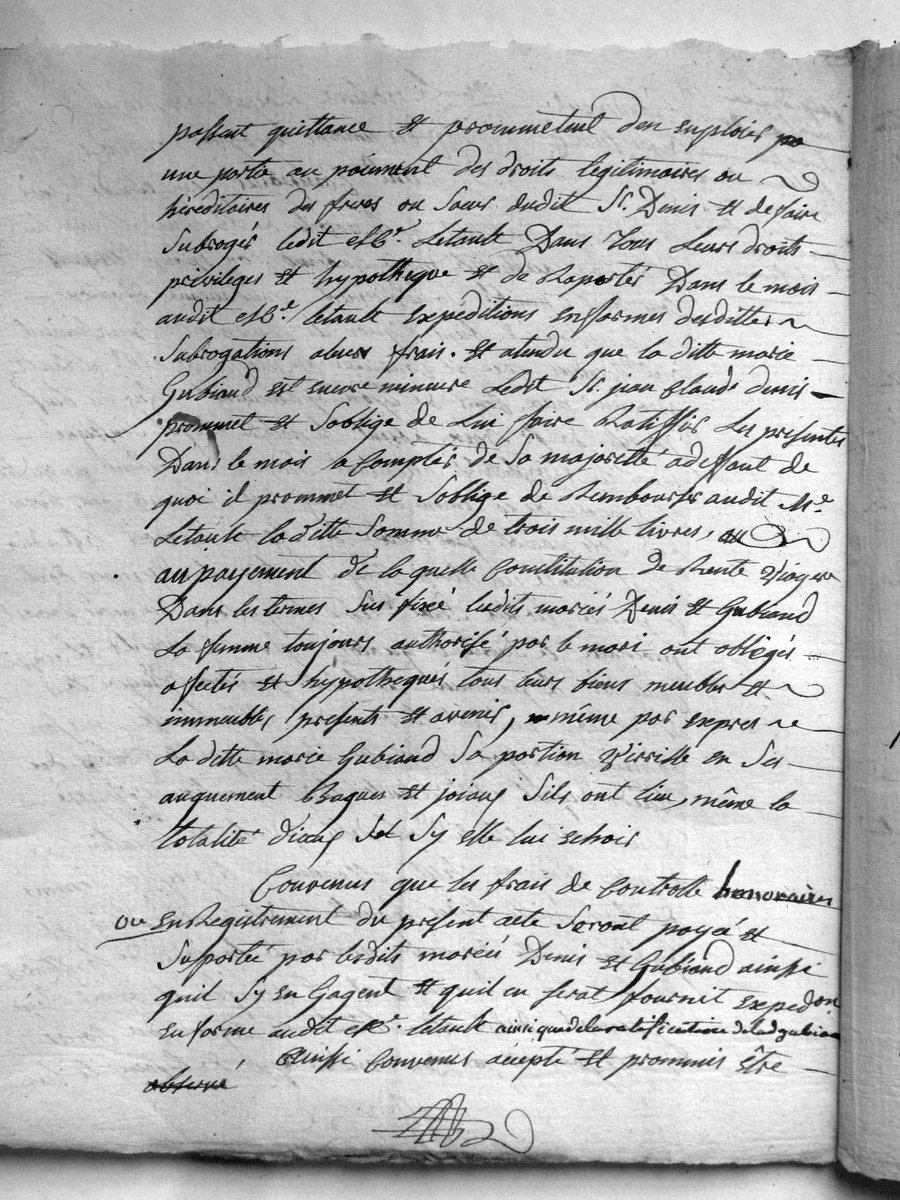 passent quittance et prommetent den emploier
une partie au paiement des droits legitimaires ou
héréditaires des freres ou Soeurs dudit Sr. Denis et de faire
Subroger ledit Mr. Letault Dans tous Leurs droits
privileges et hypotheque et de Raporter Dans le mois
audit Mr. letault Expeditions en formes desdittes
Subrogations aleurs frais. et atendu que la ditte marie
Gubiand est encore mineure Ledit Sr. jean Claude denis
prommet et Soblige de Lui faire Ratiffier Les presentes
Dans le mois a Compter de Sa majorité adeffaut de
quoi il prommet et Soblige de Rembourser audit Mr.
Letault la ditte Somme de trois mille livres,
au payement de la quelle Constitution de Rente Viagere
Dans les termes Sus fixé lesdits mariés Denis et Gubiand
La femme toujours authorisé par le mari ont obligés
afectés et hypothequés tous leurs biens meubles et
immeubles presents et avenir, même par expres
La ditte marie Gubiand Sa portion Virrille en Ses
augquement Bagues et joiaux Sils ont lieu, même la
totalité diceux Sy elle lui echoit
Convenus que les frais de Controlle honoraires
ou EnRegistrement du present acte Seront payé et
Suporté par lesdits mariés Denis et Gubiand ainssi
quil Sy en Gagent et quil en serat fournit expedon
en forme audit Mr. Letault ainsi que de la ratification de lad gubian
Ainssi Convenus acepté et prommis être
observé